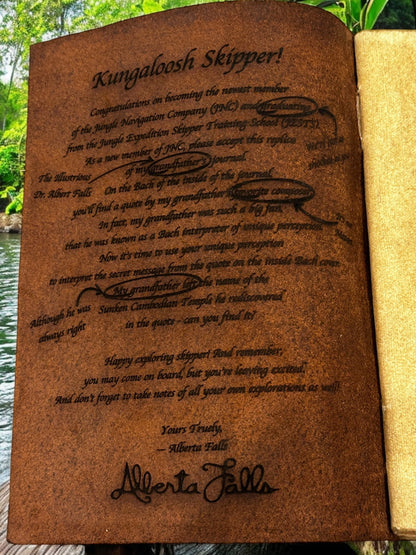 Kungaloosh Skipper!
Congratulations on becoming the newest member
of the Jungle Navigation Company (JNC) and graduating
from the Jungle Expedition Skipper Training School (JESTS)
As a new member of JNC, please accept this replica
of my grandfather's journal.
The Illustrious
Dr. Albert Falls
On the Bach of the inside of the journal,
you'll find a quote by my grandfather's favorite composer
In fact, my grandfather was such a big fan,
that he was known as a Bach interpreter of unique perception
Now it's time to use your unique perception
to interpret the secret message from the quote on the inside Bach cover.
My grandfather left the name of the
Sunken Cambodian Temple he rediscovered
in the quote - can you find it?
Although he was
always right
Happy exploring skipper! And remember,
you may come on board, but you're leaving excited.
And don't forget to take notes of all your own explorations as well!
Yours Truely,
— Alberta Falls
Alberta Falls